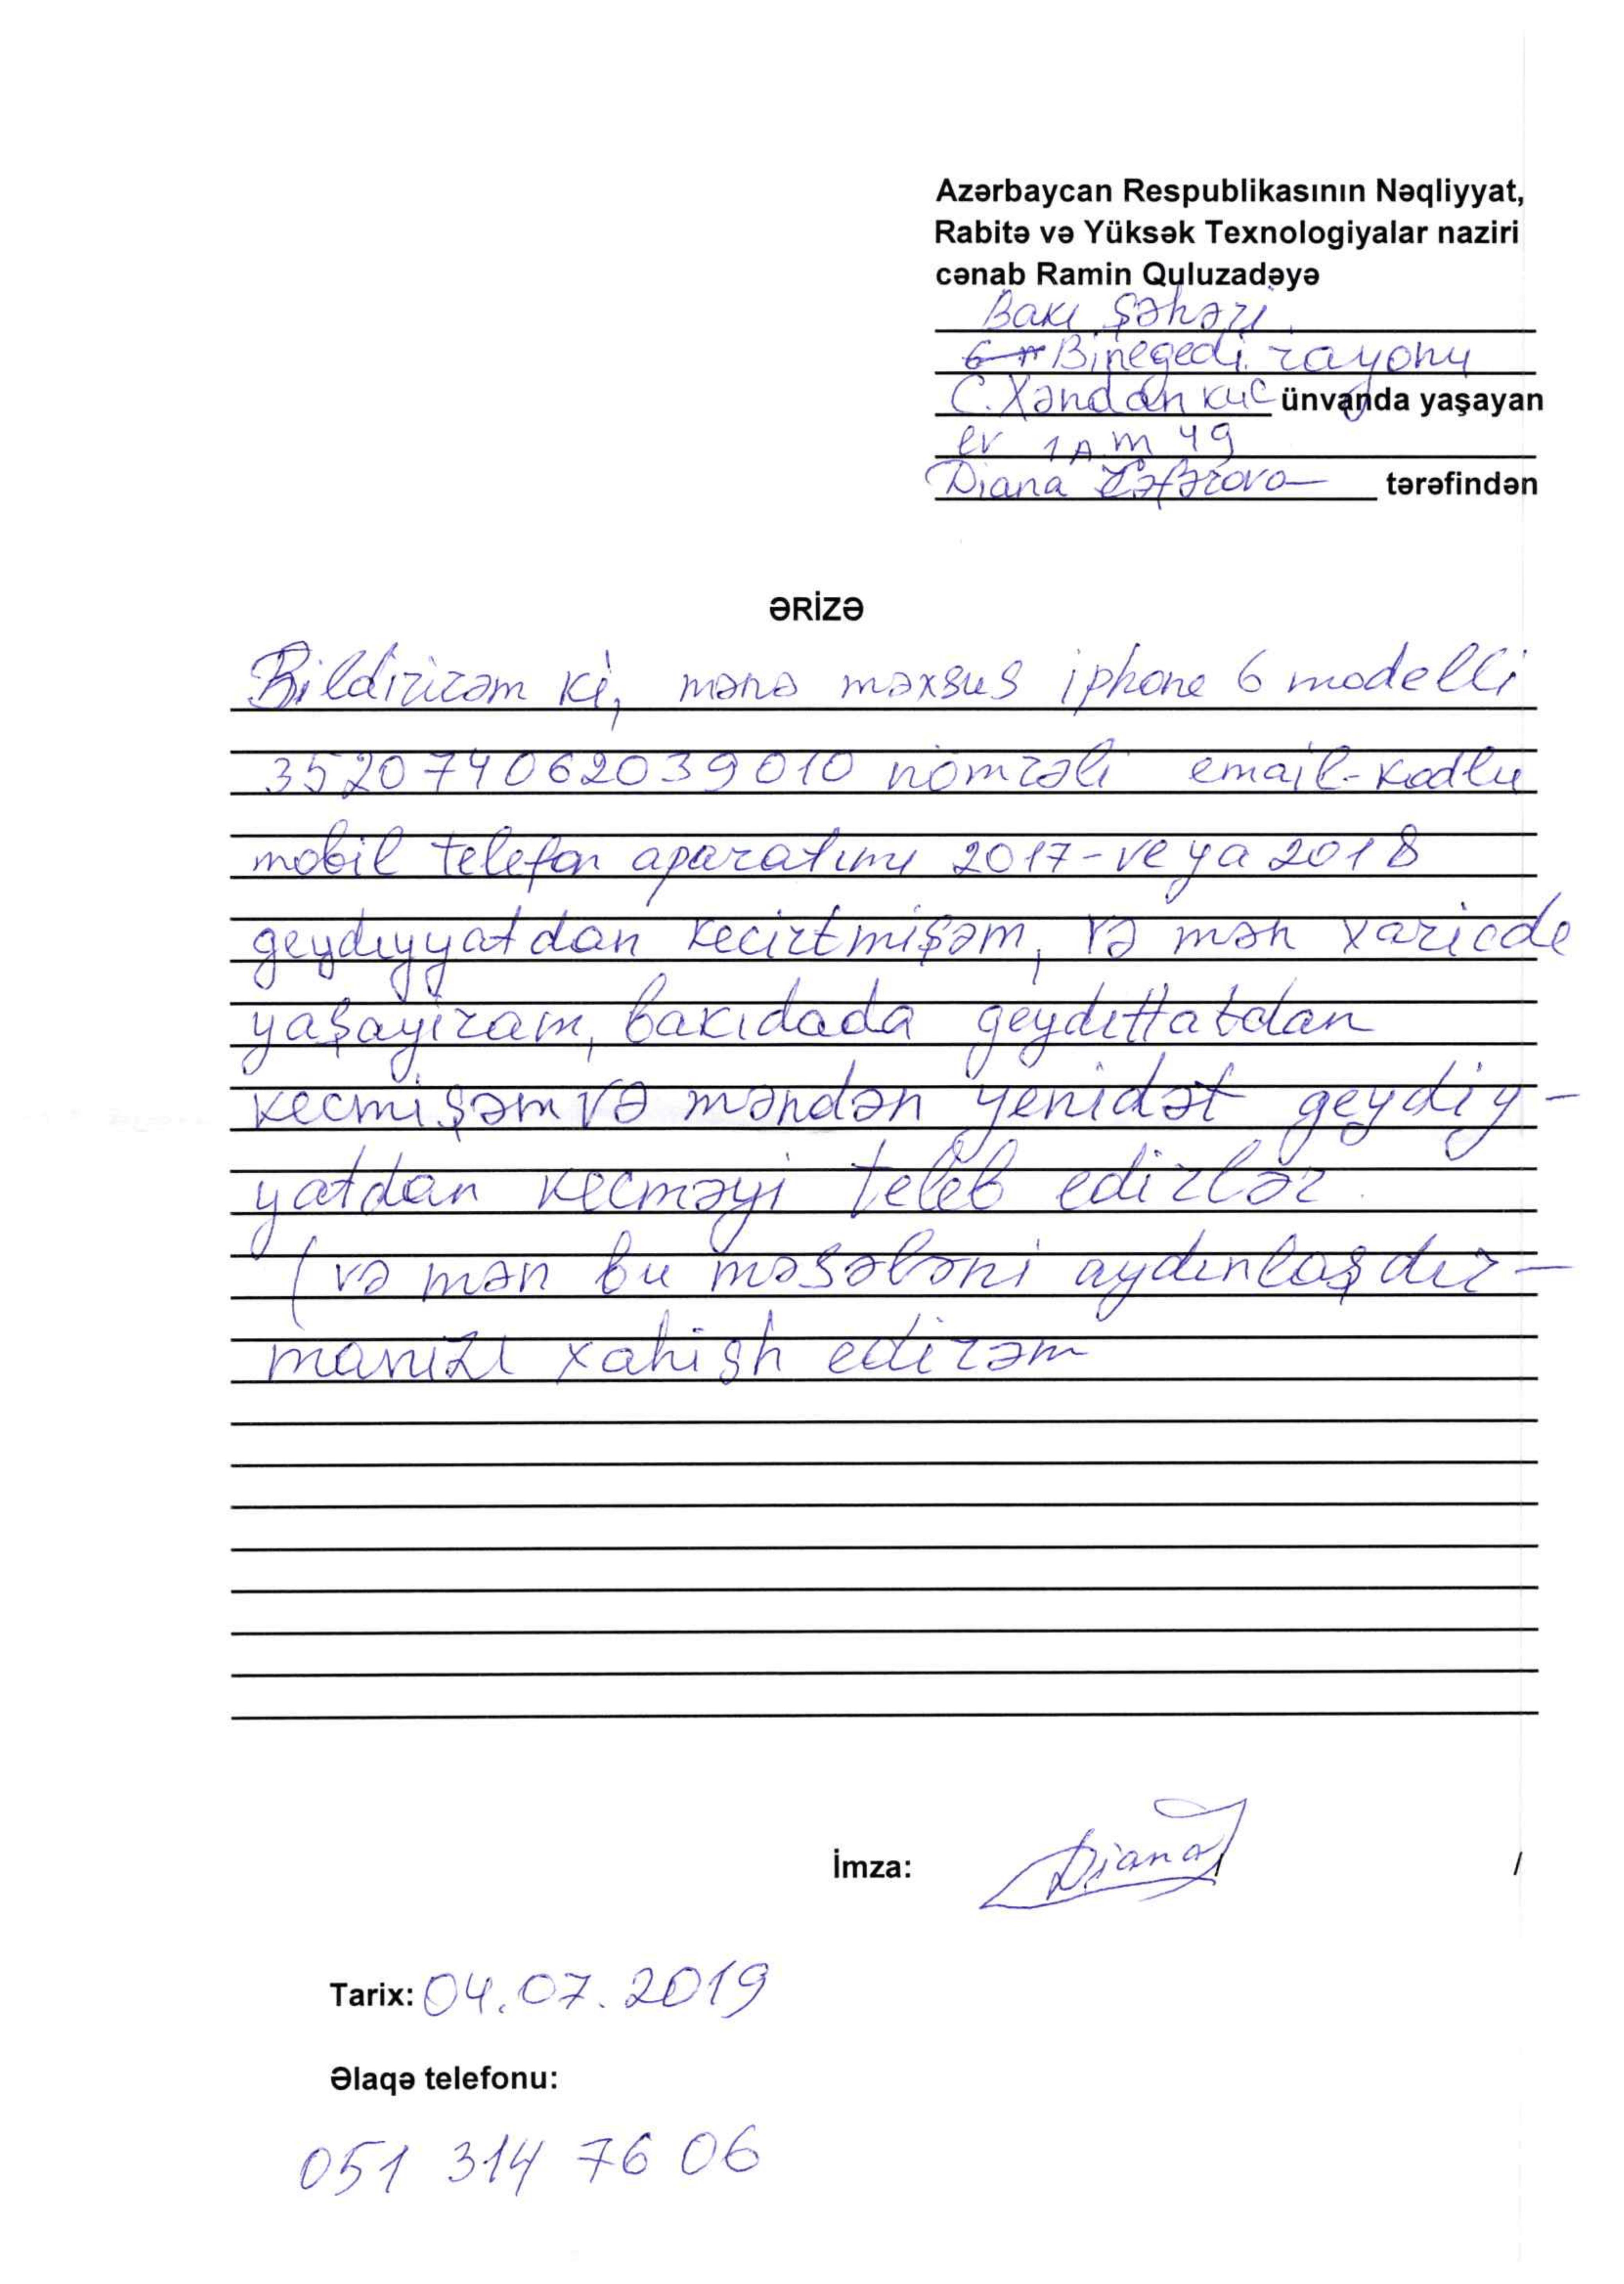 Azərbaycan Respublikasının Nəqliyyat,
Rabitə və Yüksək Texnologiyalar naziri
cənab Ramin Quluzadəyə
Bakı şəhəri
Binegedi rayonu
C.Xəndan küç ünvanda yaşayan
ev 1A m 49
Diana Cəfərova tərəfindən
ƏRİZƏ
Bildirirəm ki, mənə məxsus iphone 6 modelli
352074062039010 nömrəli email-kodlu
mobil telefon aparatımı 2017-ve ya 2018
geydıyyatdan kecirtmişəm, və mən xaricde
yaşayiram, bakıdada geydıttatdan
kecmişəm və məndən yenidət geydiy-
yatdan kecməyi teleb edirlər.
(və mən bu məsələni aydınlaşdır-
manızı xahish edirəm
İmza: Diana /
Tarix: 04.07.2019
Əlaqə telefonu:
051 314 76 06